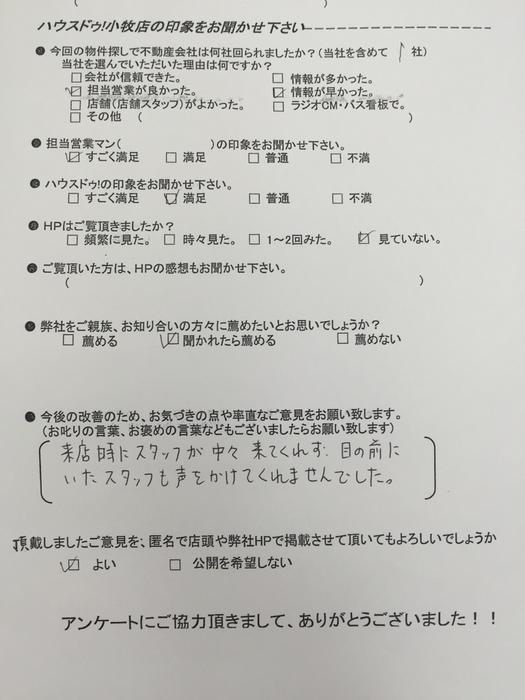 ハウスドゥ!小牧店の印象をお聞かせ下さい
今回の物件探しで不動産会社は何社回られましたか?(当社を含めて 1 社)
当社を選んでいただいた理由は何ですか?
□会社が信頼できた。 □ 情報が多かった。
☑ 担当営業が良かった。 ☑ 情報が早かった。
□ 店舗(店舗スタッフ)がよかった。 □ ラジオCM・バス看板で。
□ その他 ( )
担当営業マン( )の印象をお聞かせ下さい。
☑ すごく満足 □ 満足 □ 普通 □ 不満
ハウスドゥ!の印象をお聞かせ下さい。
□ すごく満足 ☑ 満足 □ 普通 □ 不満
HPはご覧頂きましたか?
□ 頻繁に見た。 □ 時々見た。 □ 1~2回みた。 ☑ 見ていない。
ご覧頂いた方は、HPの感想もお聞かせ下さい。
( )
弊社をご親族、お知り合いの方々に薦めたいとお思いでしょうか?
□ 薦める ☑ 聞かれたら薦める □ 薦めない
今後の改善のため、お気づきの点や率直なご意見をお願い致します。
(お叱りの言葉、お褒めの言葉などもございましたらお願い致します)
来店時にスタッフが中々来てくれず、目の前に
いたスタッフも声をかけてくれませんでした。
頂戴しましたご意見を、匿名で店頭や弊社HPで掲載させて頂いてもよろしいでしょうか
☑ よい □ 公開を希望しない
アンケートにご協力頂きまして、ありがとうございました!!